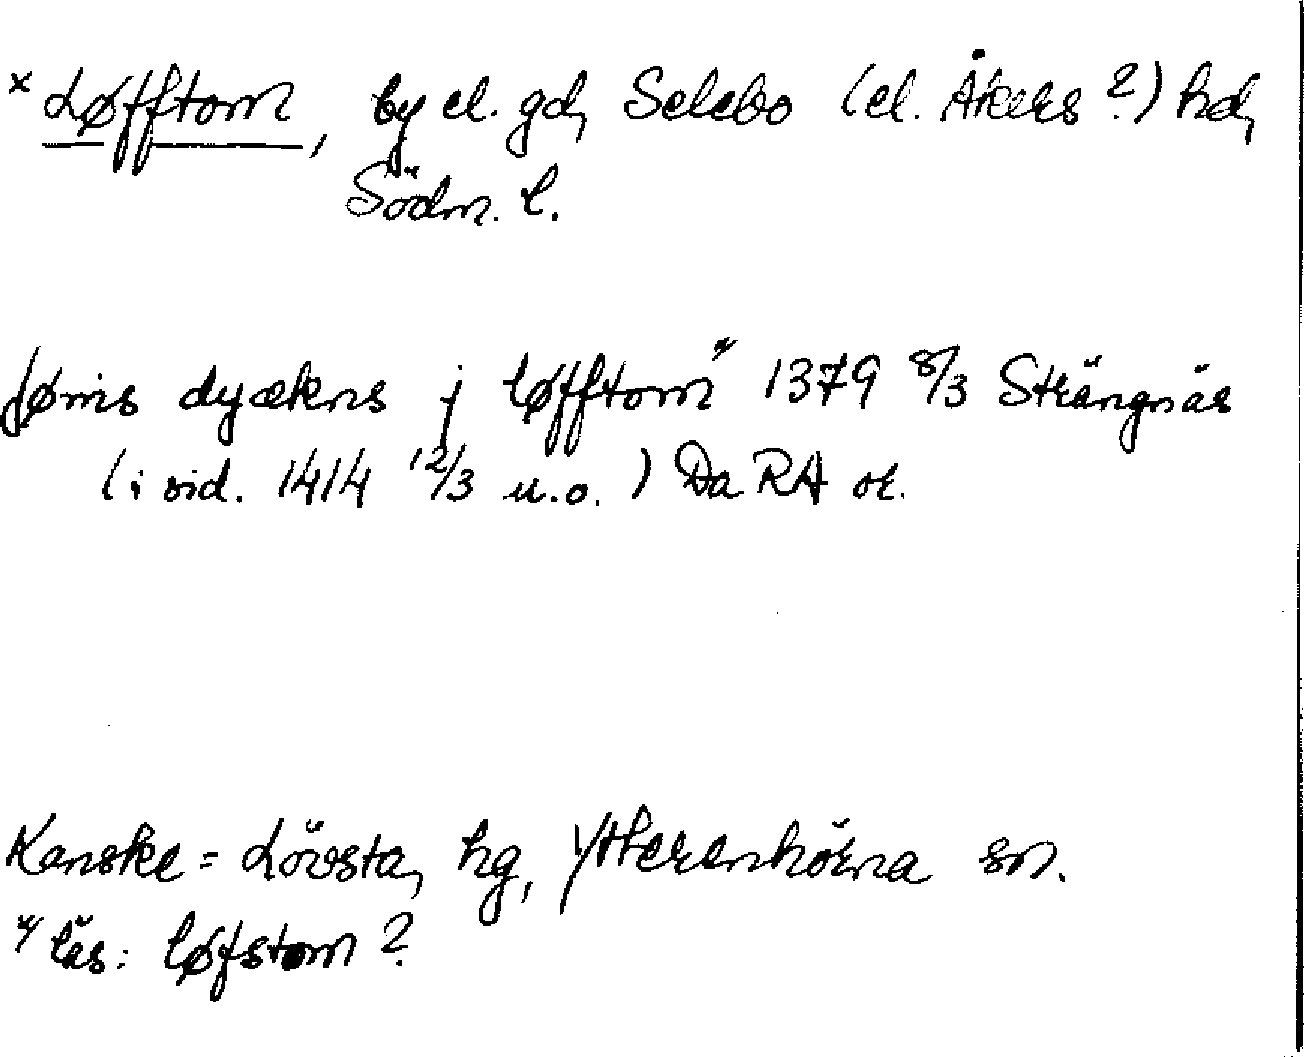 x Løfftom, by el. gd, Selebo (el. Åkers?) hd,
Södm. l.
Jønis dyækns j løfftom x) 1379 8/3 Strängnäs
(i vid. 1414 12/3 u.o.) Da RA or.
Kanske = Lövsta, hg, Ytterenhörna sn.
x) läs: løfstom?